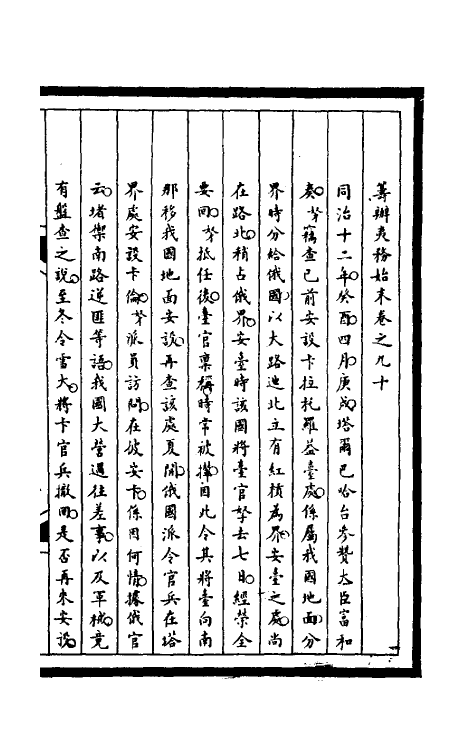 籌辦夷務始末卷之九十
同治十二年癸酉四月庚戌塔爾巴哈台參贊大臣富和
奏竊查已前安設卡拉托羅蓋臺處係屬我國地面分
界時分給俄國以大路迤北立有紅樁為界安臺之處尚
在路北稍占俄界安臺時該國將臺官拏去七日經榮全
要回等抵任後臺官稟稱時常被攆因此令其將臺向南
那移我國地面安設再查該處夏間俄國派令官兵在塔
界處安設卡倫等派員訪問在彼安卡係因何情據俄官
云堵禦南路逆匪等語我國大營過往差事以及軍械竟
有盤查之說至冬令雪大將卡官兵撤回是否再來安設